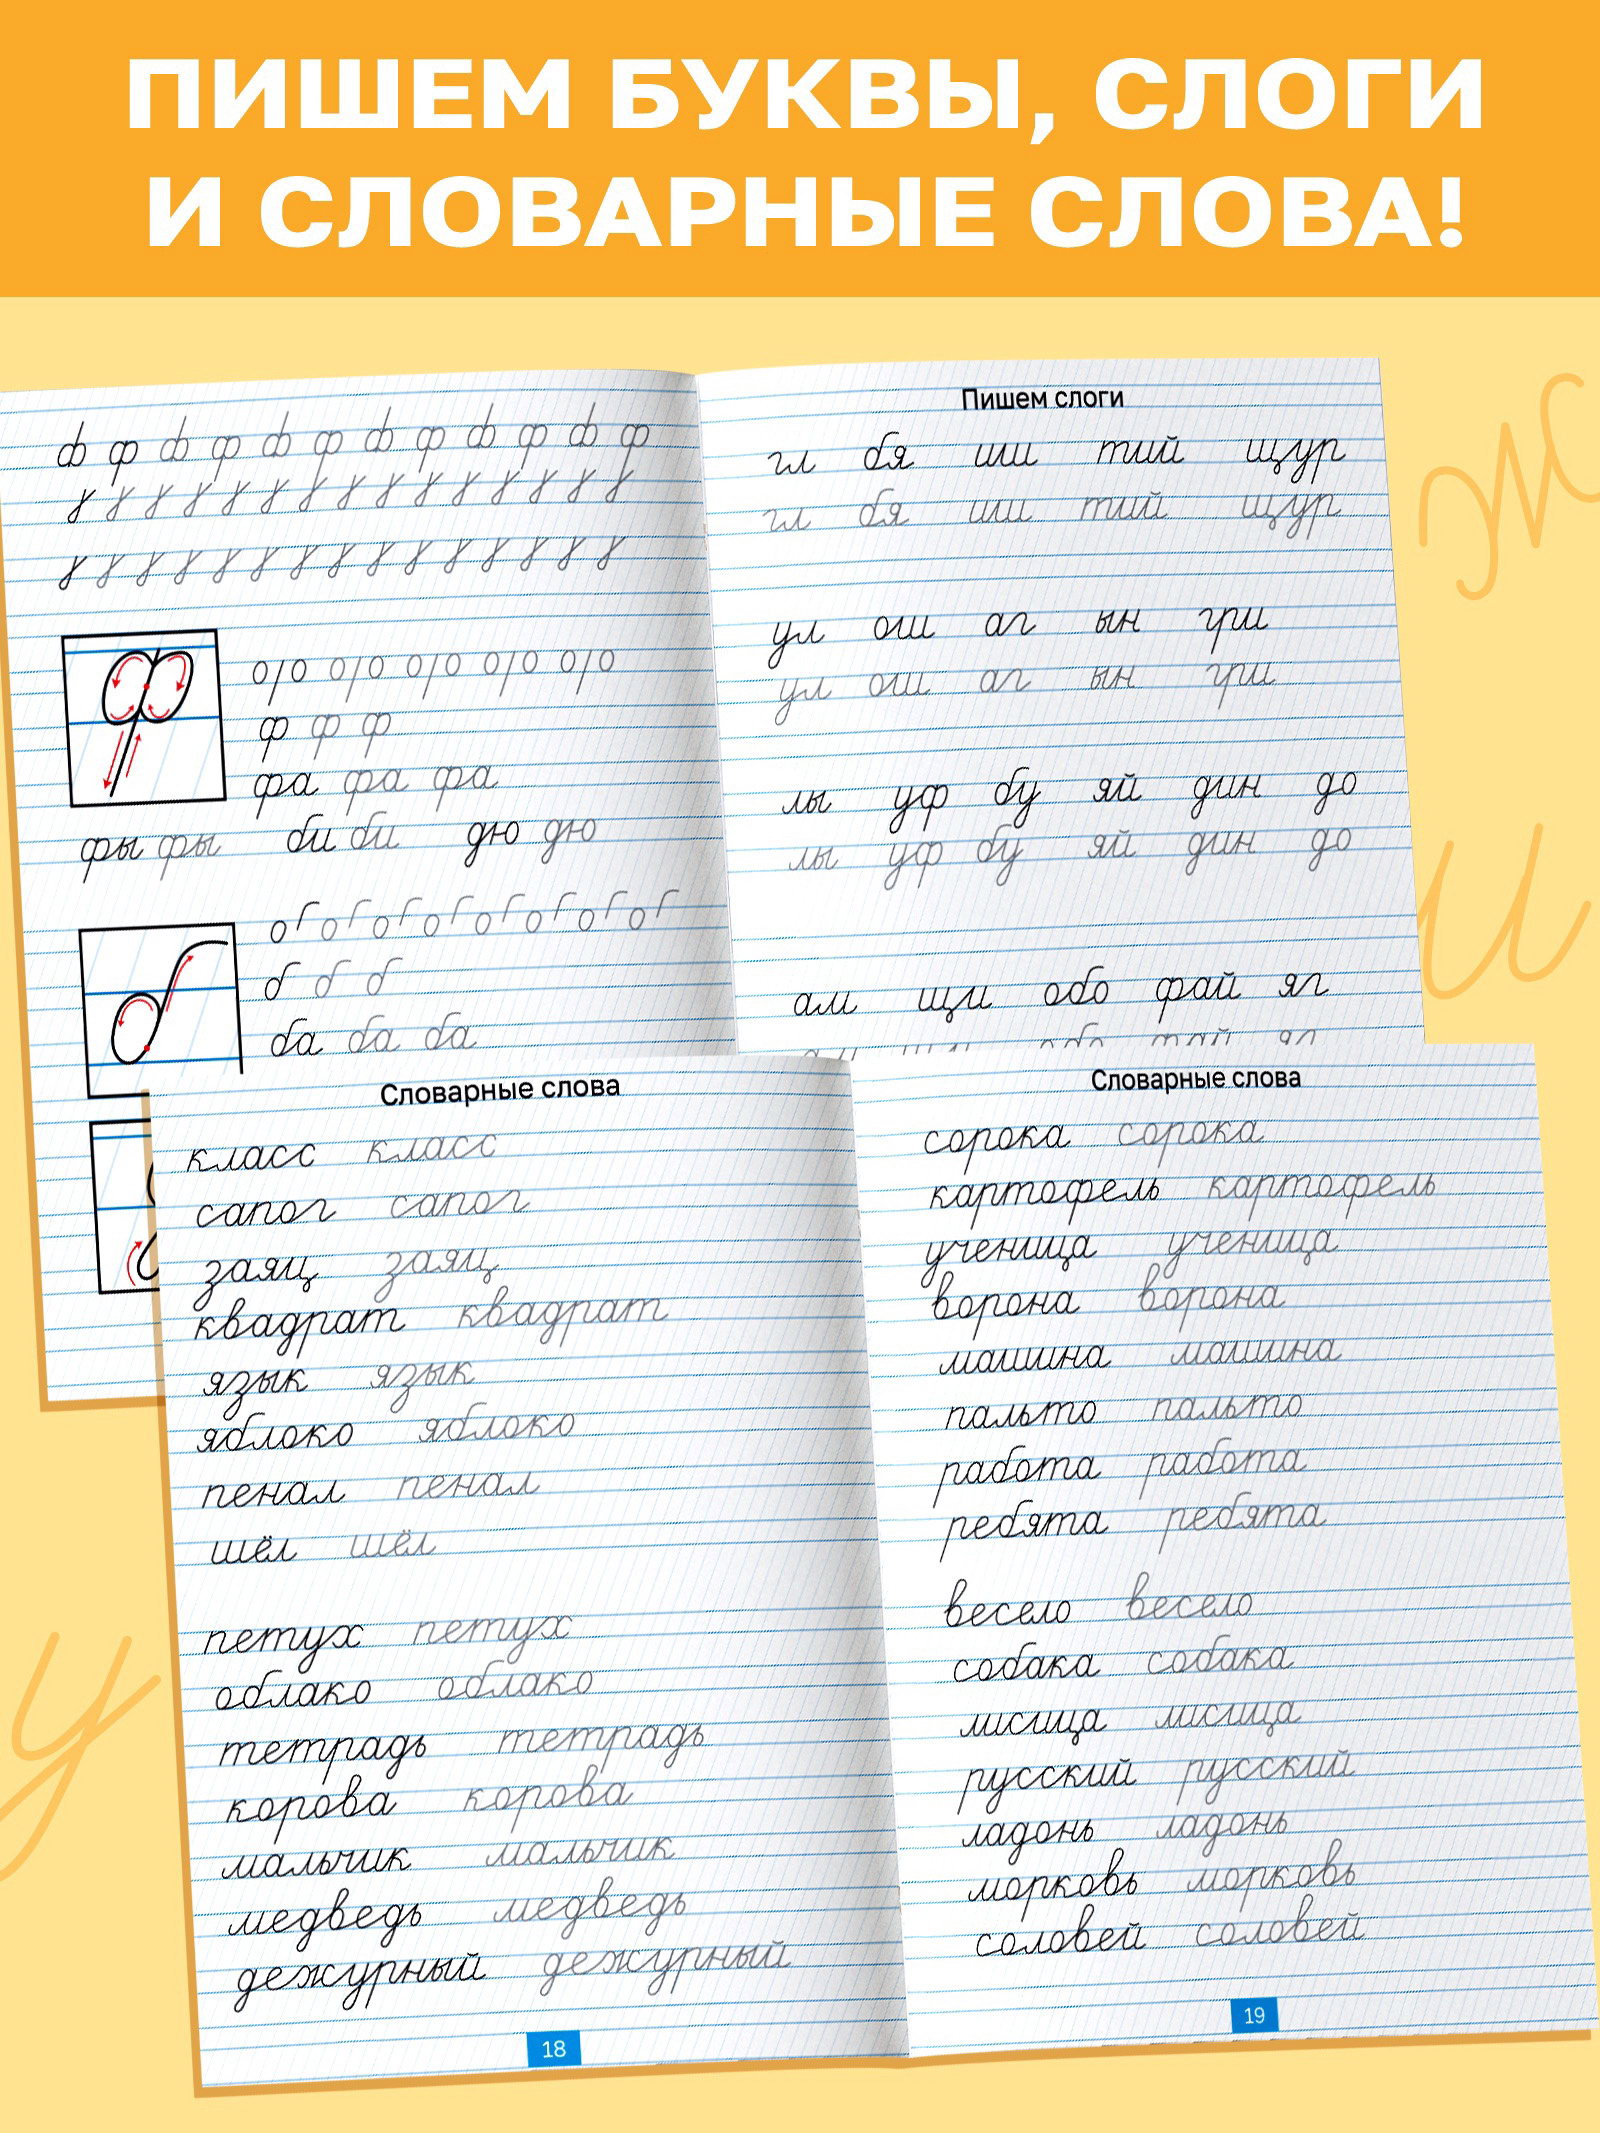 ПИШЕМ БУКВЫ, СЛОГИ
И СЛОВАРНЫЕ СЛОВА!
ф ф ф ф ф ф ф ф
ф ф ф
фа фа фа
фы фы би би дю дю
б б б
ба ба ба
Пишем слоги
гл бя ши тий щур
гл бя ши тий щур
ул ош аг ын гри
ул ош аг ын гри
лы уф бу яй дин до
лы уф бу яй дин до
ам щи обо фай яг
Словарные слова
класс класс
сапог сапог
заяц заяц
квадрат квадрат
язык язык
яблоко яблоко
пенал пенал
шёл шёл
петух петух
облако облако
тетрадь тетрадь
корова корова
мальчик мальчик
медведь медведь
дежурный дежурный
18
Словарные слова
сорока сорока
картофель картофель
ученица ученица
ворона ворона
машина машина
пальто пальто
работа работа
ребята ребята
весело весело
собака собака
лисица лисица
русский русский
ладонь ладонь
морковь морковь
соловей соловей
19
ж
и
у